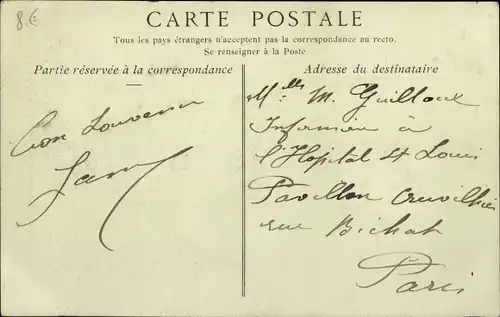 8.€
CARTE POSTALE
Tous les pays étrangers n'acceptent pas la correspondance au recto.
Se renseigner à la Poste
Partie réservée à la correspondance
Adresse du destinataire
Bon Souvenir
Melle M. Guilloux
Infirmière à
l'Hopital St Louis
Pavillon
rue Bichat
Paris